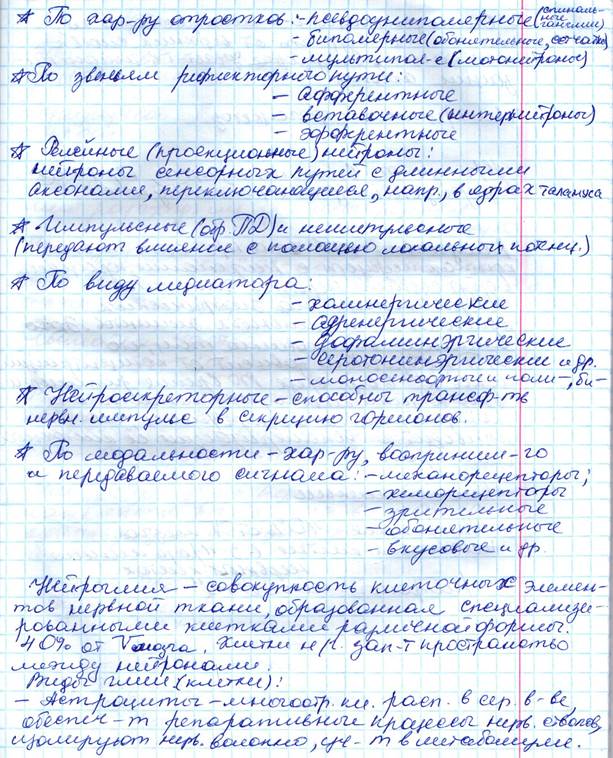 * По хар-ру отростков: - псевдоуниполярные (спинальные ганглии)
- биполярные (обонятельные, сетчатка)
- мультипол-е (мотонейроны)
* По звеньям рефлекторного пути:
- афферентные
- вставочные (интернейроны)
- эфферентные
* Релейные (проекционные) нейроны:
нейроны сенсорных путей с длинными
аксонами, переключающиеся, напр., в ядрах таламуса
* Импульсные (обр. ПД) и неимпульсные
(передают влияния с помощью локальных потенц.)
* По виду медиатора:
- холинергические
- адренергические
- дофаминэргические
- серотонинэргические и др.
- моносенсорные и поли-, би-
* Нейросекреторные - способны трансф-ть
нервн. импульс в секрецию гормонов.
* По модальности - хар-ру, восприним-го
и передаваемого сигнала: - механорецепторы;
- хеморецепторы
- зрительные
- обонятельные
- вкусовые и др.
Нейроглия - совокупность клеточных элемен-
тов нервной ткани, образованная специализи-
рованными клетками различной формы.
40% от V мозга. Клетки н/г. зап-т пространство
между нейронами.
Виды глии (клетки):
- Астроциты - многоотр. кл. расп. в сер. в-ве,
обеспеч-т репаративные процессы нерв. стволов,
изолируют нерв. волокно, уч-т в метаболизме.